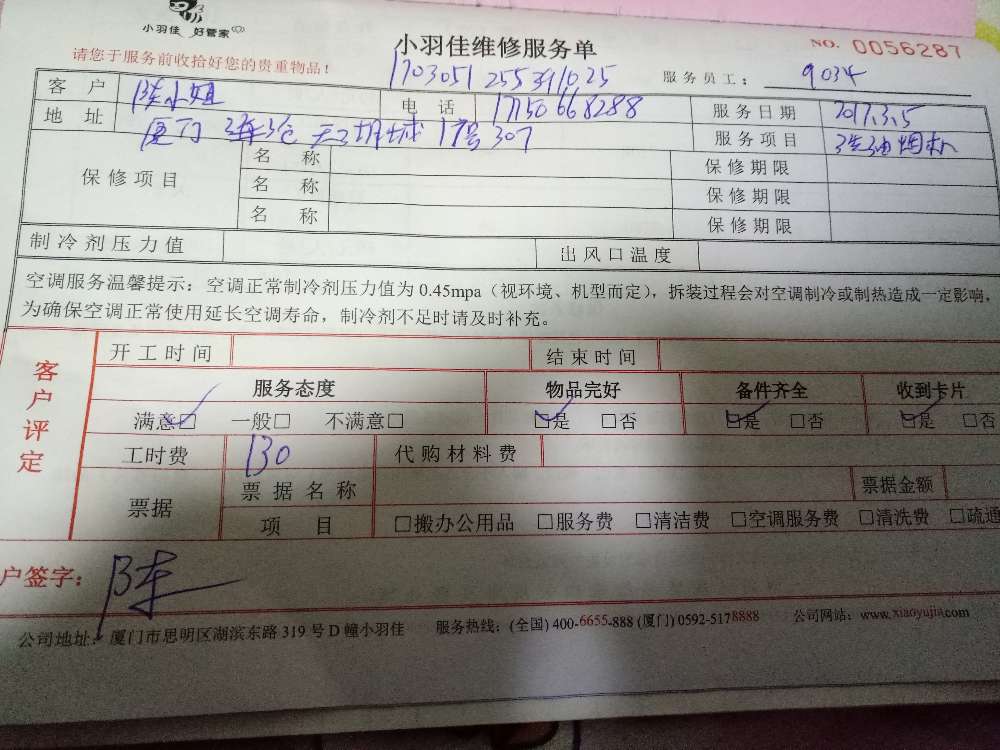 小羽佳 好管家
小羽佳维修服务单
NO. 0056287
请您于服务前收拾好您的贵重物品！
服务员工： 9034
客户 陈小姐 电话 17150668288 服务日期 2017.3.5
地址 厦门 17号307 服务项目 洗油烟机
保修项目 名称 保修期限
名称 保修期限
名称 保修期限
制冷剂压力值 出风口温度
空调服务温馨提示：空调正常制冷剂压力值为 0.45mpa（视环境、机型而定），拆装过程会对空调制冷或制热造成一定影响，
为确保空调正常使用延长空调寿命，制冷剂不足时请及时补充。
客户评定
开工时间 结束时间
服务态度 物品完好 备件齐全 收到卡片
满意☑ 一般□ 不满意□ ☑是 □否 ☑是 □否 ☑是 □否
工时费 130 代购材料费
票据 票据名称 票据金额
项目 □搬办公用品 □服务费 □清洁费 □空调服务费 □清洗费 □疏通
户签字： 陈
公司地址：厦门市思明区湖滨东路 319 号 D 幢小羽佳 服务热线：(全国) 400-6655-888 (厦门) 0592-5178888 公司网站：www.xiaoyujia.com